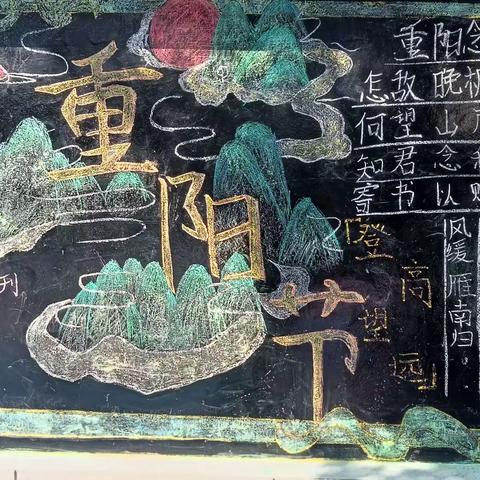 重阳节
刊
重阳念
怎敌晚
何望山
知君念
寄书以
「登高望远」
风缓雁南归。